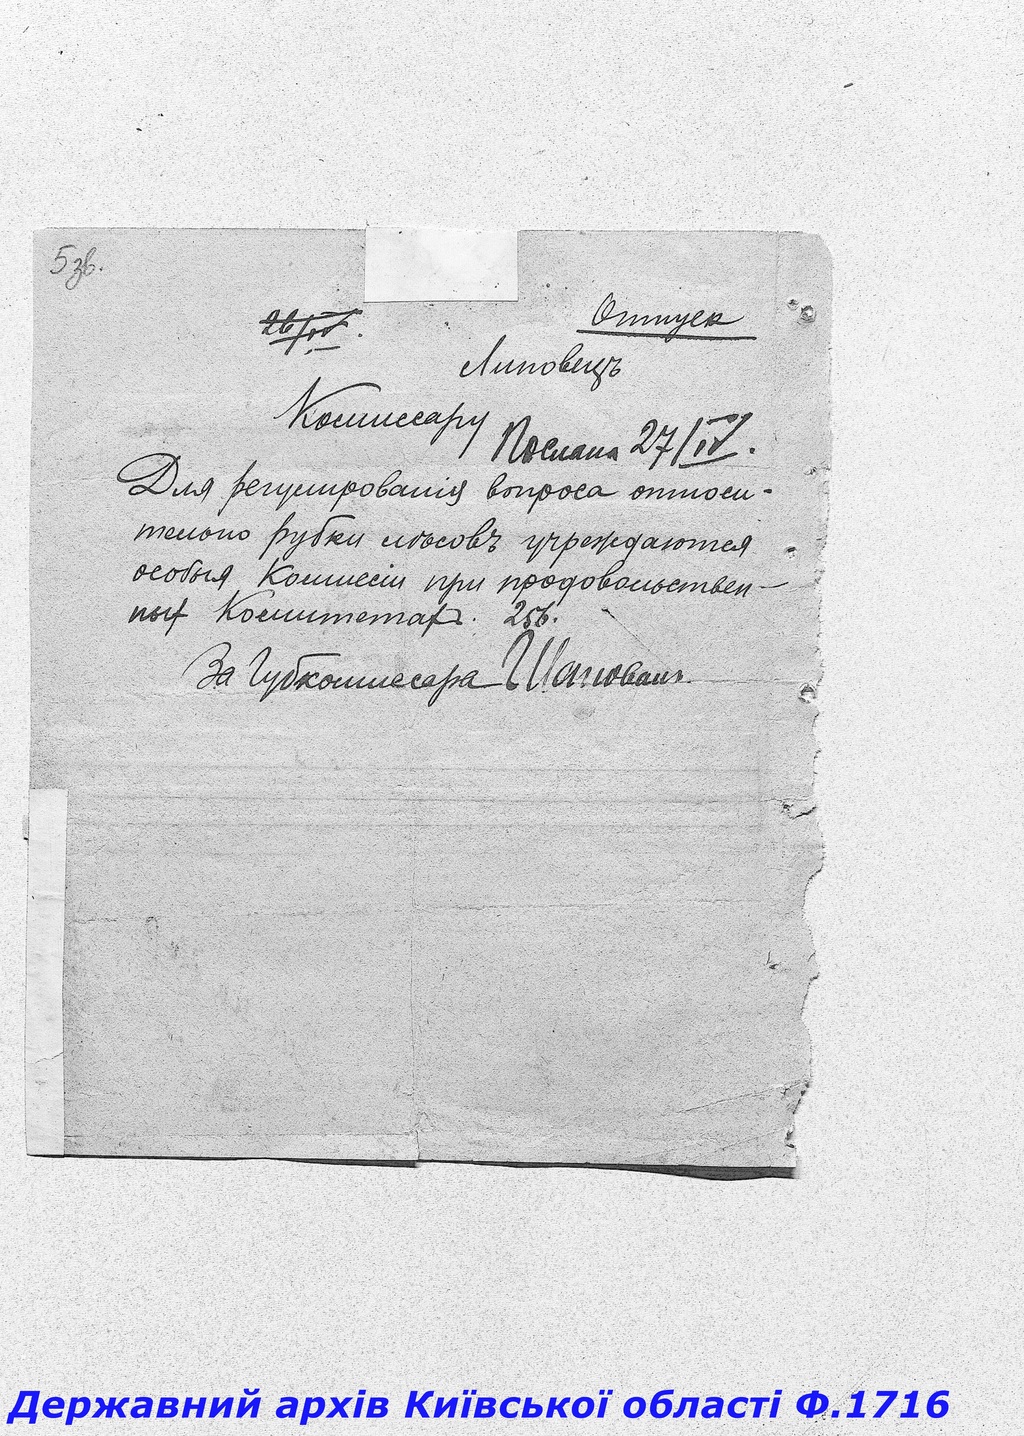 5 зв.
26/IV.
Отпуск
Липовецъ
Комиссару
Послана 27/IV.
Для регулированія вопроса относи-
тельно рубки лѣсовъ учреждаются
особыя Комиссіи при продовольствен-
ных Комитетах. 256.
За Губкомиссара Шаповал.
Державний архів Київської області Ф.1716